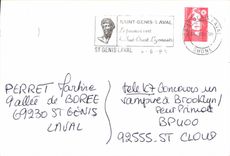 SAINT-GENIS-LAVAL
ST GENIS LAVAL
RHONE
PERRET Martine
9 allée de BOREE
69230 ST GENIS
LAVAL
télé K7 Concours un
vampire à Brooklyn/
Peur Primale
BP400
92555. ST CLOUD